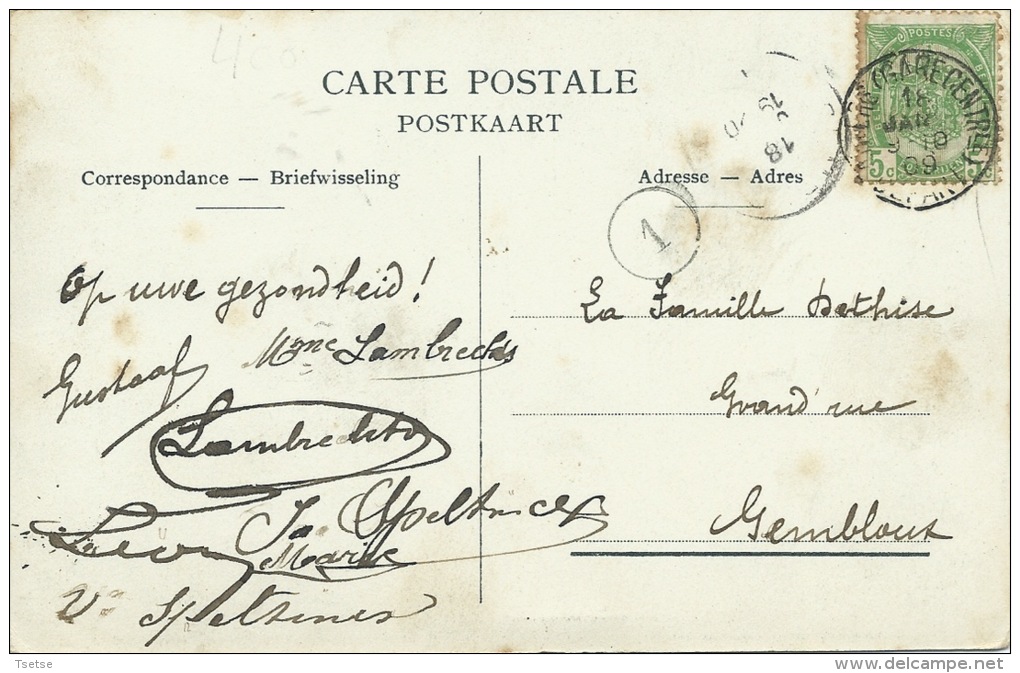 CARTE POSTALE
POSTKAART
Correspondance — Briefwisseling
Adresse — Adres
POSTES
5c 5c
(GARE CENTRALE)
18
JAN
09
DEPART
18
1
Op uwe gezondheid!
Mme Lambrechts
Gustaaf
Lambrechts
Leon
Marie
Ve Speltincx
La Famille Dethise
Grand'rue
Gembloux
Tsetse
delcampe.net